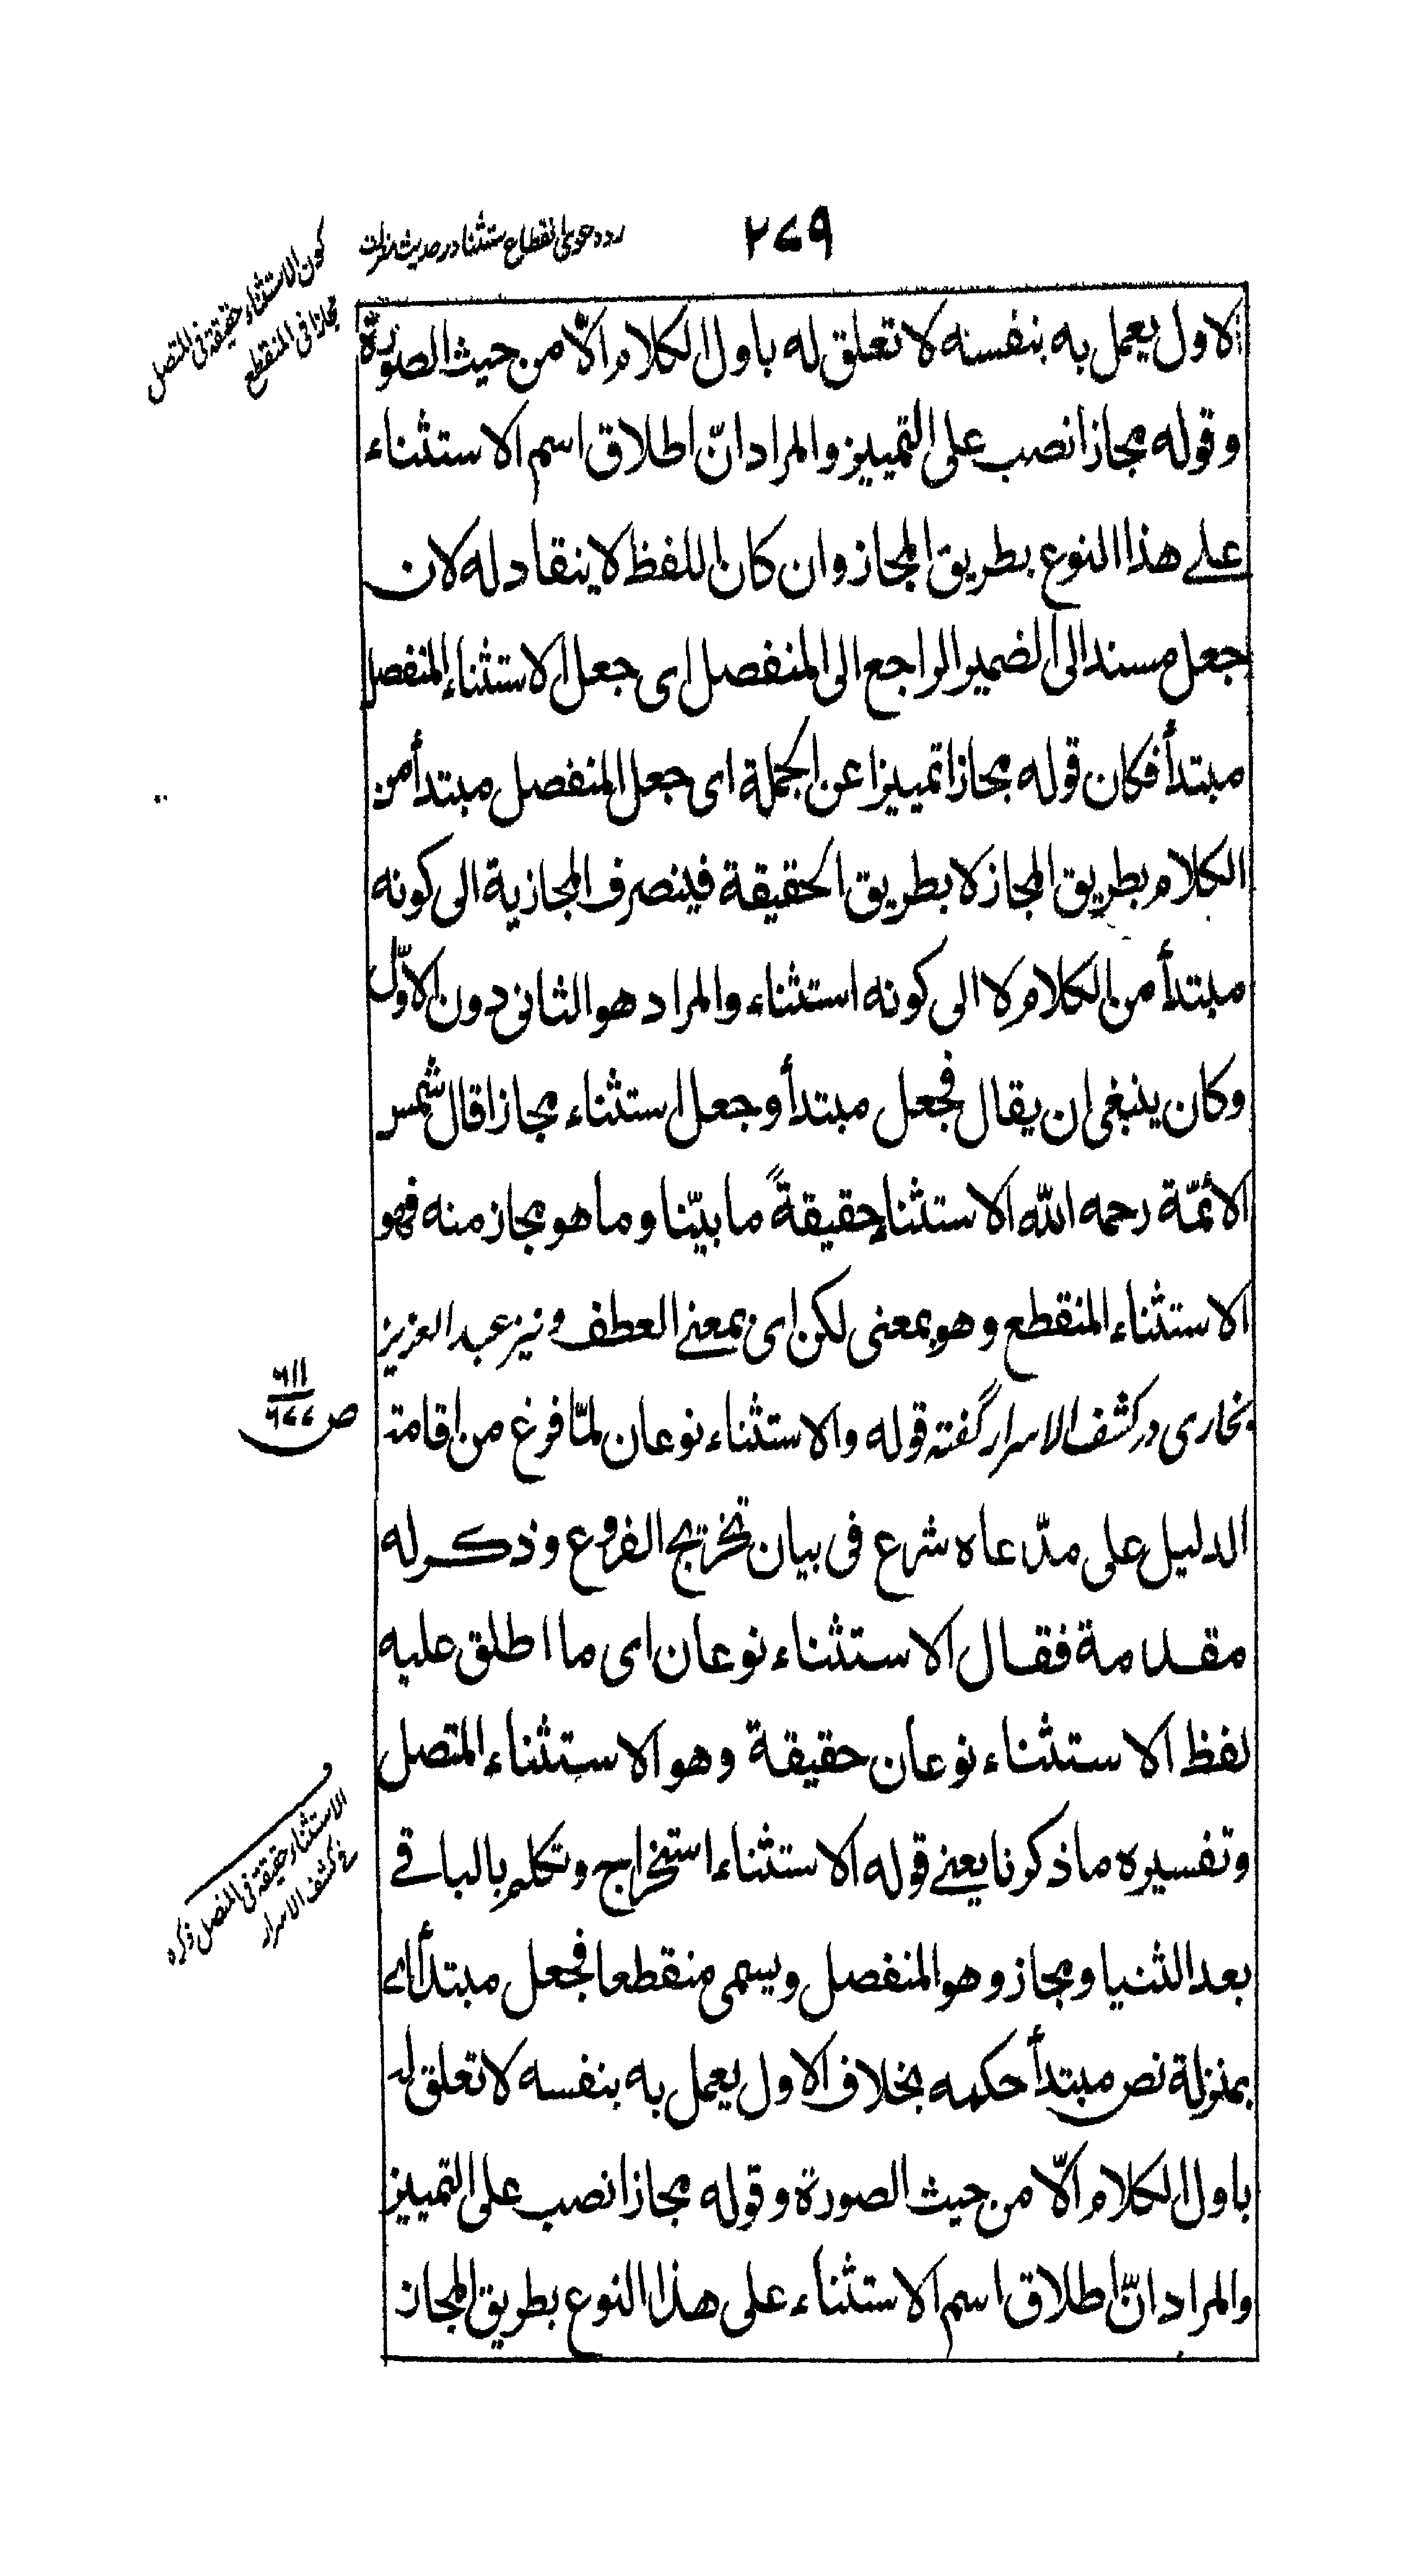 ۲۷۹
رد دعوی انقطاع ستثنا در حدیث منزلت
كون الاستثناء حقيقة فى المتصل
مجازا فى المنقطع
الاول يعمل به بنفسه لا تعلق له باول الكلام الّا من حيث الصورة
وقوله مجازا نصب على التمييز والمراد انّ اطلاق اسم الاستثناء
على هذا النوع بطريق المجاز وان كان اللفظ لا ينقاد له لان
جعل مسند الى الضمير الراجع الى المنفصل اى جعل الاستثناء المنفصل
مبتدأ فكان قوله مجازا تمييزا عن الجملة اى جعل المنفصل مبتدأ من
الكلام بطريق المجاز لا بطريق الحقيقة فينصرف المجازية الى كونه
مبتدأ من الكلام لا الى كونه استثناء والمراد هو الثانى دون الاوّل
وكان ينبغى ان يقال فجعل مبتدأ وجعل استثناء مجازا قال شمس
الأئمّة رحمه الله الاستثناء حقيقةً ما بيّنا وما هو مجاز منه فهو
الاستثناء المنقطع وهو بمعنى لكن اى بمعنے العطف ونیز عبد العزیز
بخاری در کشف الاسرار گفته قوله والاستثناء نوعان لمّا فرغ من اقامة
ص ۶۱۱
۶۷۷
الدليل على مدّعاه شرع فى بيان تخريج الفروع وذكر له
مقدمة فقال الاستثناء نوعان اى ما اطلق عليه
لفظ الاستثناء نوعان حقيقة وهو الاستثناء المتصل
وتفسيره ما ذكرنا يعنے قوله الاستثناء استخراج وتكلم بالباقے
الاستثناء حقيقة فى المتصل ذكره
فى كشف الاسرار
بعد الثنيا ومجاز وهو المنفصل ويسمى منقطعا فجعل مبتدأ اے
بمنزلة نص مبتدأ حكمه بخلاف الاول يعمل به بنفسه لا تعلق له
باول الكلام الّا من حيث الصورة وقوله مجازا نصب على التمييز
والمراد انّ اطلاق اسم الاستثناء على هذا النوع بطريق المجاز